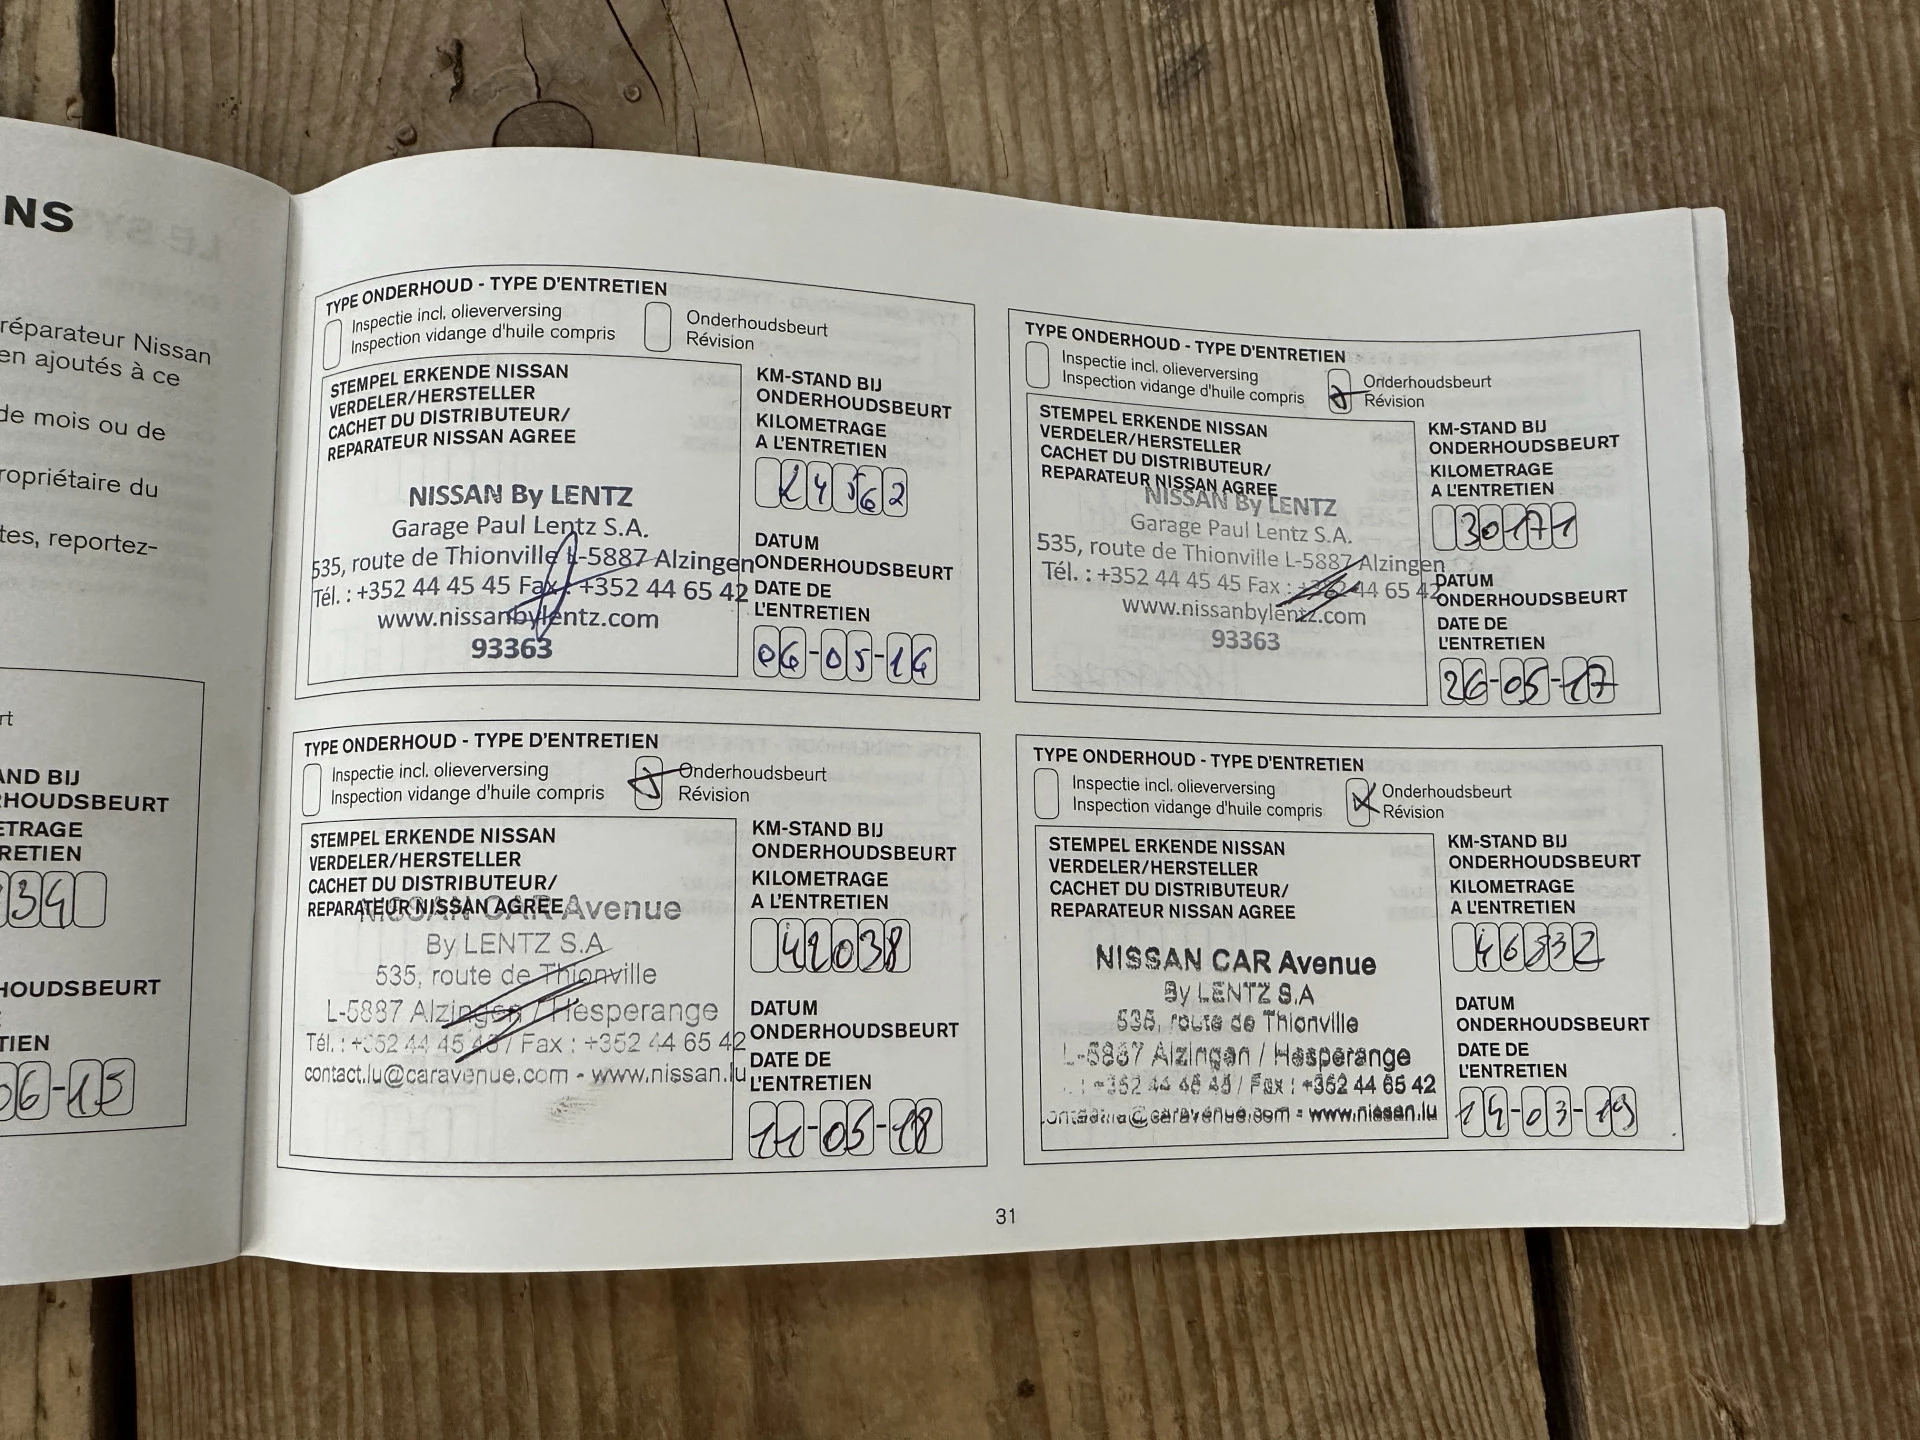 NS
réparateur Nissan
en ajoutés à ce
de mois ou de
ropriétaire du
tes, reportez-
rt
AND BIJ
RHOUDSBEURT
ETRAGE
RETIEN
34
HOUDSBEURT
TIEN
06-15
TYPE ONDERHOUD - TYPE D'ENTRETIEN
Inspectie incl. olieverversing
Inspection vidange d'huile compris
Onderhoudsbeurt
Révision
STEMPEL ERKENDE NISSAN
VERDELER/HERSTELLER
CACHET DU DISTRIBUTEUR/
REPARATEUR NISSAN AGREE
NISSAN By LENTZ
Garage Paul Lentz S.A.
535, route de Thionville L-5887 Alzingen
Tél. : +352 44 45 45 Fax : +352 44 65 42
www.nissanbylentz.com
93363
KM-STAND BIJ
ONDERHOUDSBEURT
KILOMETRAGE
A L'ENTRETIEN
24562
DATUM
ONDERHOUDSBEURT
DATE DE
L'ENTRETIEN
06-05-16
TYPE ONDERHOUD - TYPE D'ENTRETIEN
Inspectie incl. olieverversing
Inspection vidange d'huile compris
Onderhoudsbeurt
Révision
STEMPEL ERKENDE NISSAN
VERDELER/HERSTELLER
CACHET DU DISTRIBUTEUR/
REPARATEUR NISSAN AGREE
NISSAN By LENTZ
Garage Paul Lentz S.A.
535, route de Thionville L-5887 Alzingen
Tél. : +352 44 45 45 Fax : +352 44 65 42
www.nissanbylentz.com
93363
KM-STAND BIJ
ONDERHOUDSBEURT
KILOMETRAGE
A L'ENTRETIEN
30171
DATUM
ONDERHOUDSBEURT
DATE DE
L'ENTRETIEN
26-05-17
TYPE ONDERHOUD - TYPE D'ENTRETIEN
Inspectie incl. olieverversing
Inspection vidange d'huile compris
Onderhoudsbeurt
Révision
STEMPEL ERKENDE NISSAN
VERDELER/HERSTELLER
CACHET DU DISTRIBUTEUR/
REPARATEUR NISSAN AGREE
NISSAN CAR Avenue
By LENTZ S.A
535, route de Thionville
L-5887 Alzingen / Hesperange
Tél. : +352 44 45 45 / Fax : +352 44 65 42
contact.lu@caravenue.com - www.nissan.lu
KM-STAND BIJ
ONDERHOUDSBEURT
KILOMETRAGE
A L'ENTRETIEN
42038
DATUM
ONDERHOUDSBEURT
DATE DE
L'ENTRETIEN
11-05-18
TYPE ONDERHOUD - TYPE D'ENTRETIEN
Inspectie incl. olieverversing
Inspection vidange d'huile compris
Onderhoudsbeurt
Révision
STEMPEL ERKENDE NISSAN
VERDELER/HERSTELLER
CACHET DU DISTRIBUTEUR/
REPARATEUR NISSAN AGREE
NISSAN CAR Avenue
By LENTZ S.A
535, route de Thionville
L-5887 Alzingen / Hesperange
: +352 44 45 45 / Fax : +352 44 65 42
@caravenue.com - www.nissan.lu
KM-STAND BIJ
ONDERHOUDSBEURT
KILOMETRAGE
A L'ENTRETIEN
DATUM
ONDERHOUDSBEURT
DATE DE
L'ENTRETIEN
14-03-19
31